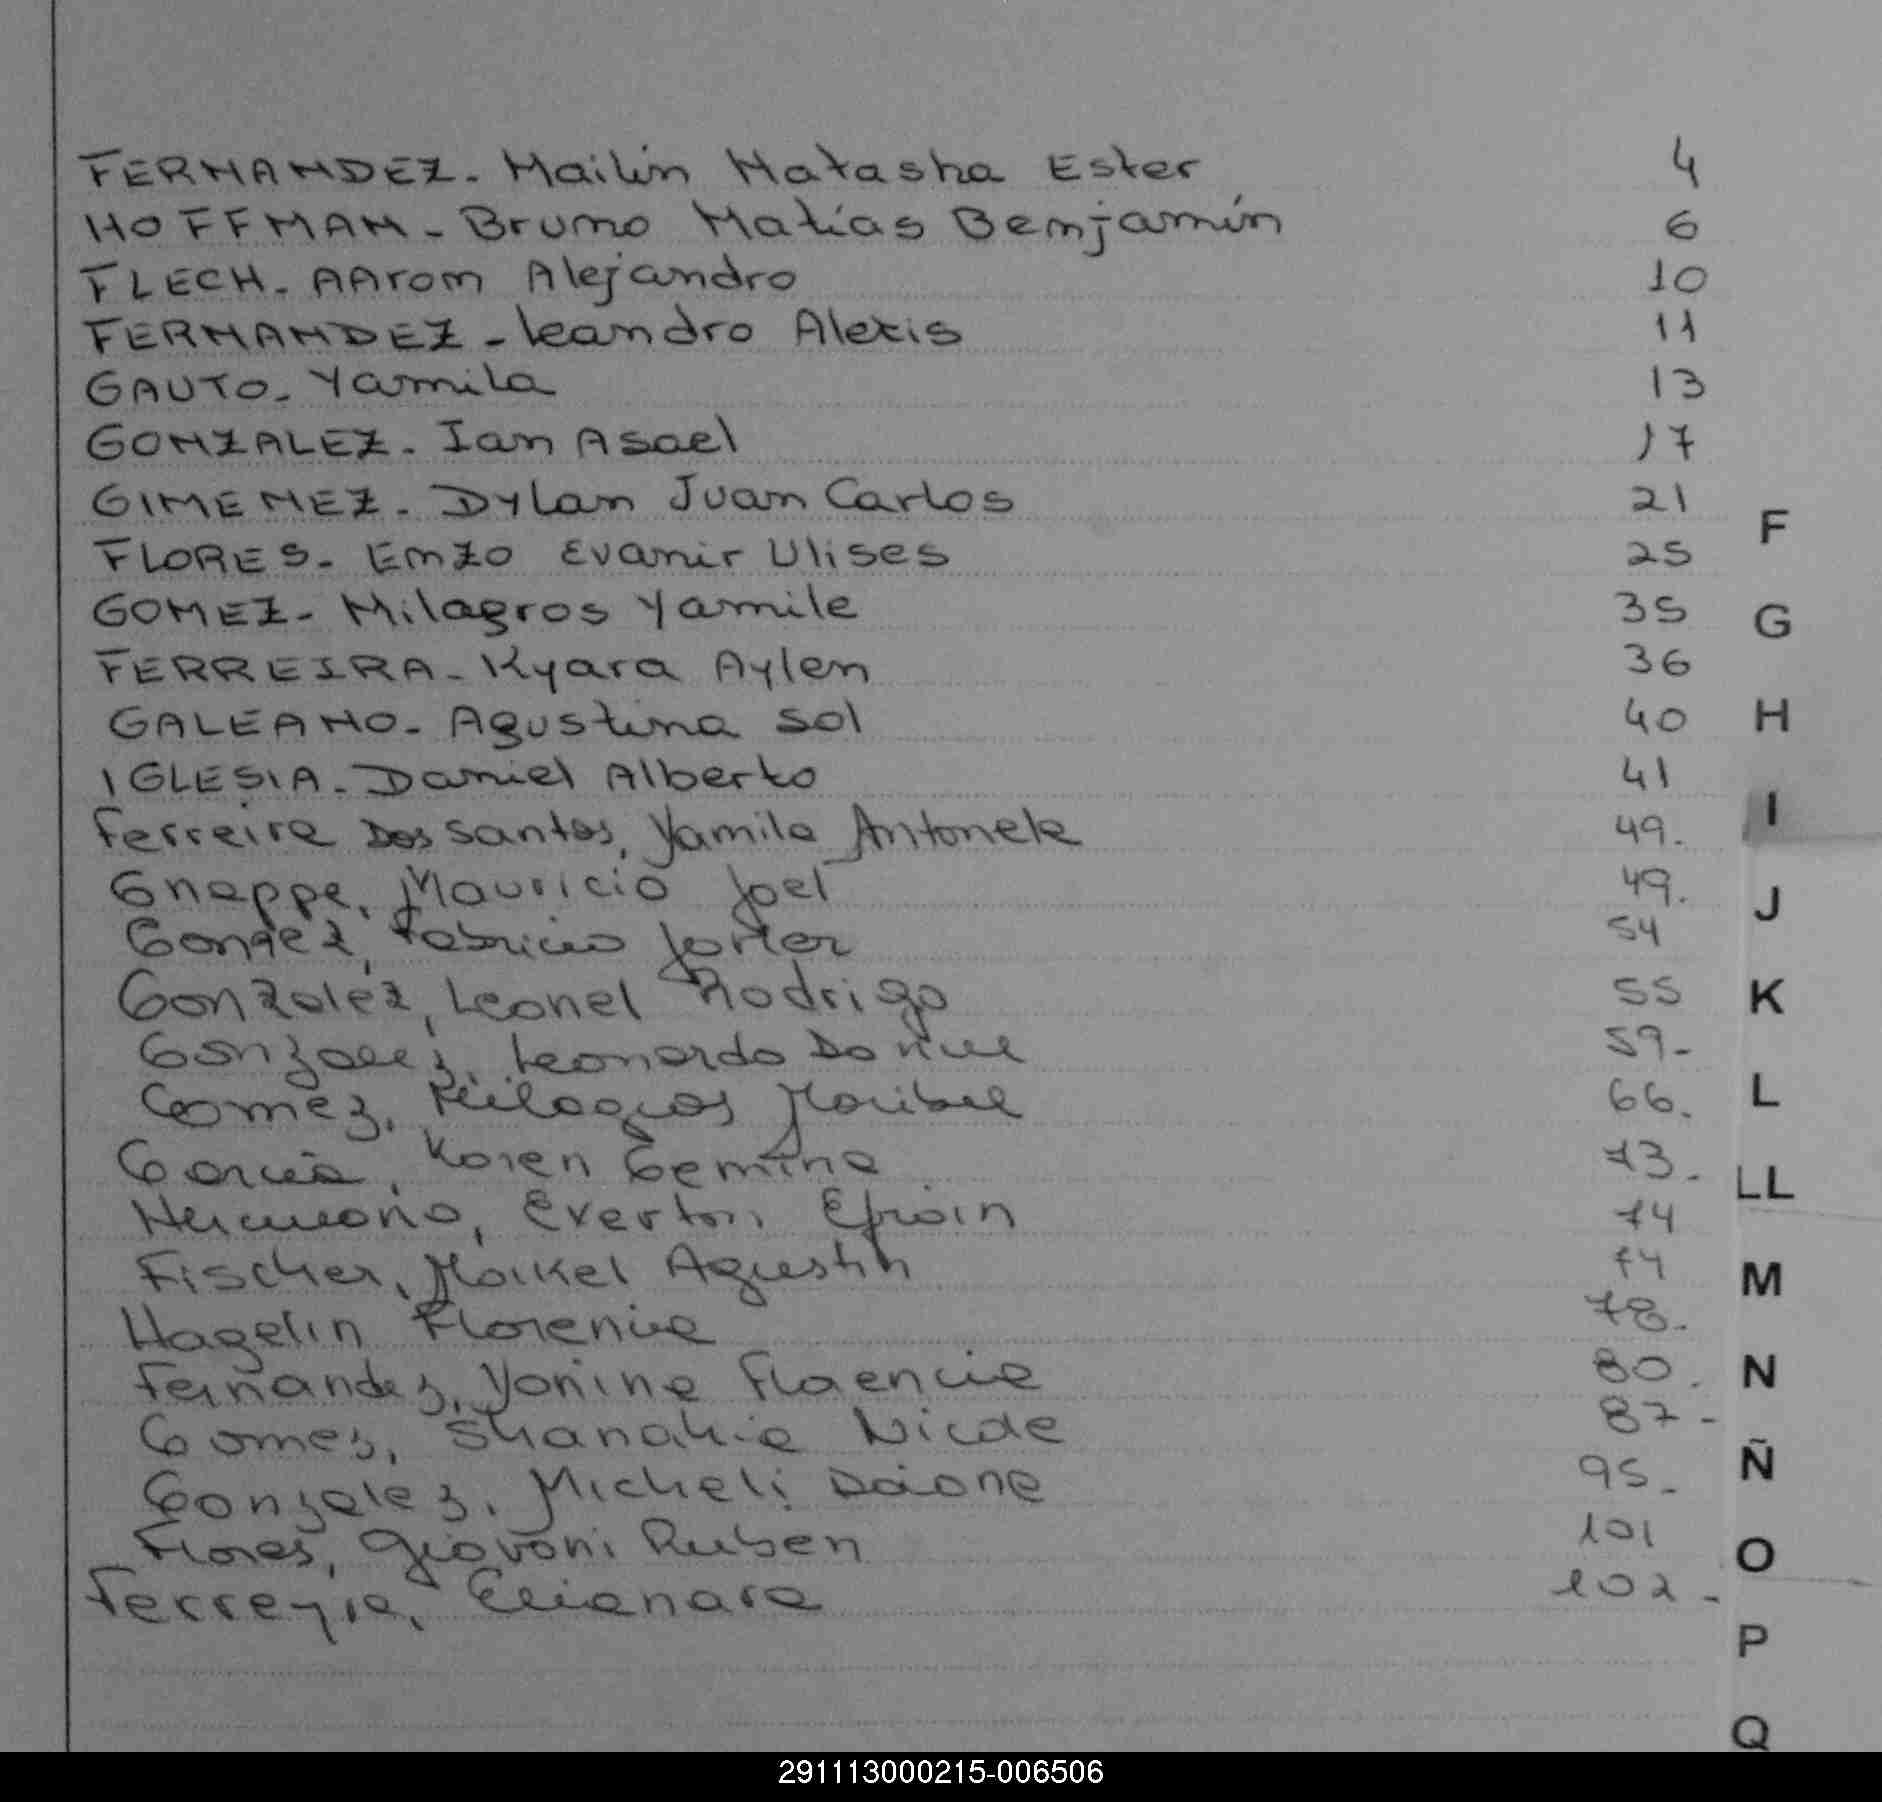 FERNANDEZ. Mailín Natasha Ester 4
HOFFMAN - Bruno Matías Benjamín 6
FLECH - AAron Alejandro 10
FERNANDEZ - Leandro Alexis 11
GAUTO - Yamila 13
GONZALEZ. Ian Asael 17
GIMENEZ. Dylan Juan Carlos 21
F
FLORES - Enzo Evanir Ulises 25
GOMEZ - Milagros Yamile 35
G
FERREIRA - Kyara Aylen 36
GALEANO - Agustina Sol 40
H
IGLESIA - Daniel Alberto 41
I
Ferreira Dos Santos, Yamila Antonela 49.
Gnappe, Mauricio Joel 49.
J
Fabricio 54
Gonzalez, Leonel Rodrigo 55
K
Gonzalez, Leonardo Daniel 59-
Gomez, Milagros Maribel 66.
L
Garcia, Karen Gemina 73.
LL
Everton Efrain 74
Fischer, Maikel Agustin 74
M
Hagelin Florencia 78.
Fernandez, Yanina Florencia 80.
N
Gomes, Nicole 87-
Gonzalez, Micheli Daiane 95.
Ñ
Flores, Giovani Ruben 101
O
Ferreyra, Elianara 102-
P
Q
291113000215-006506